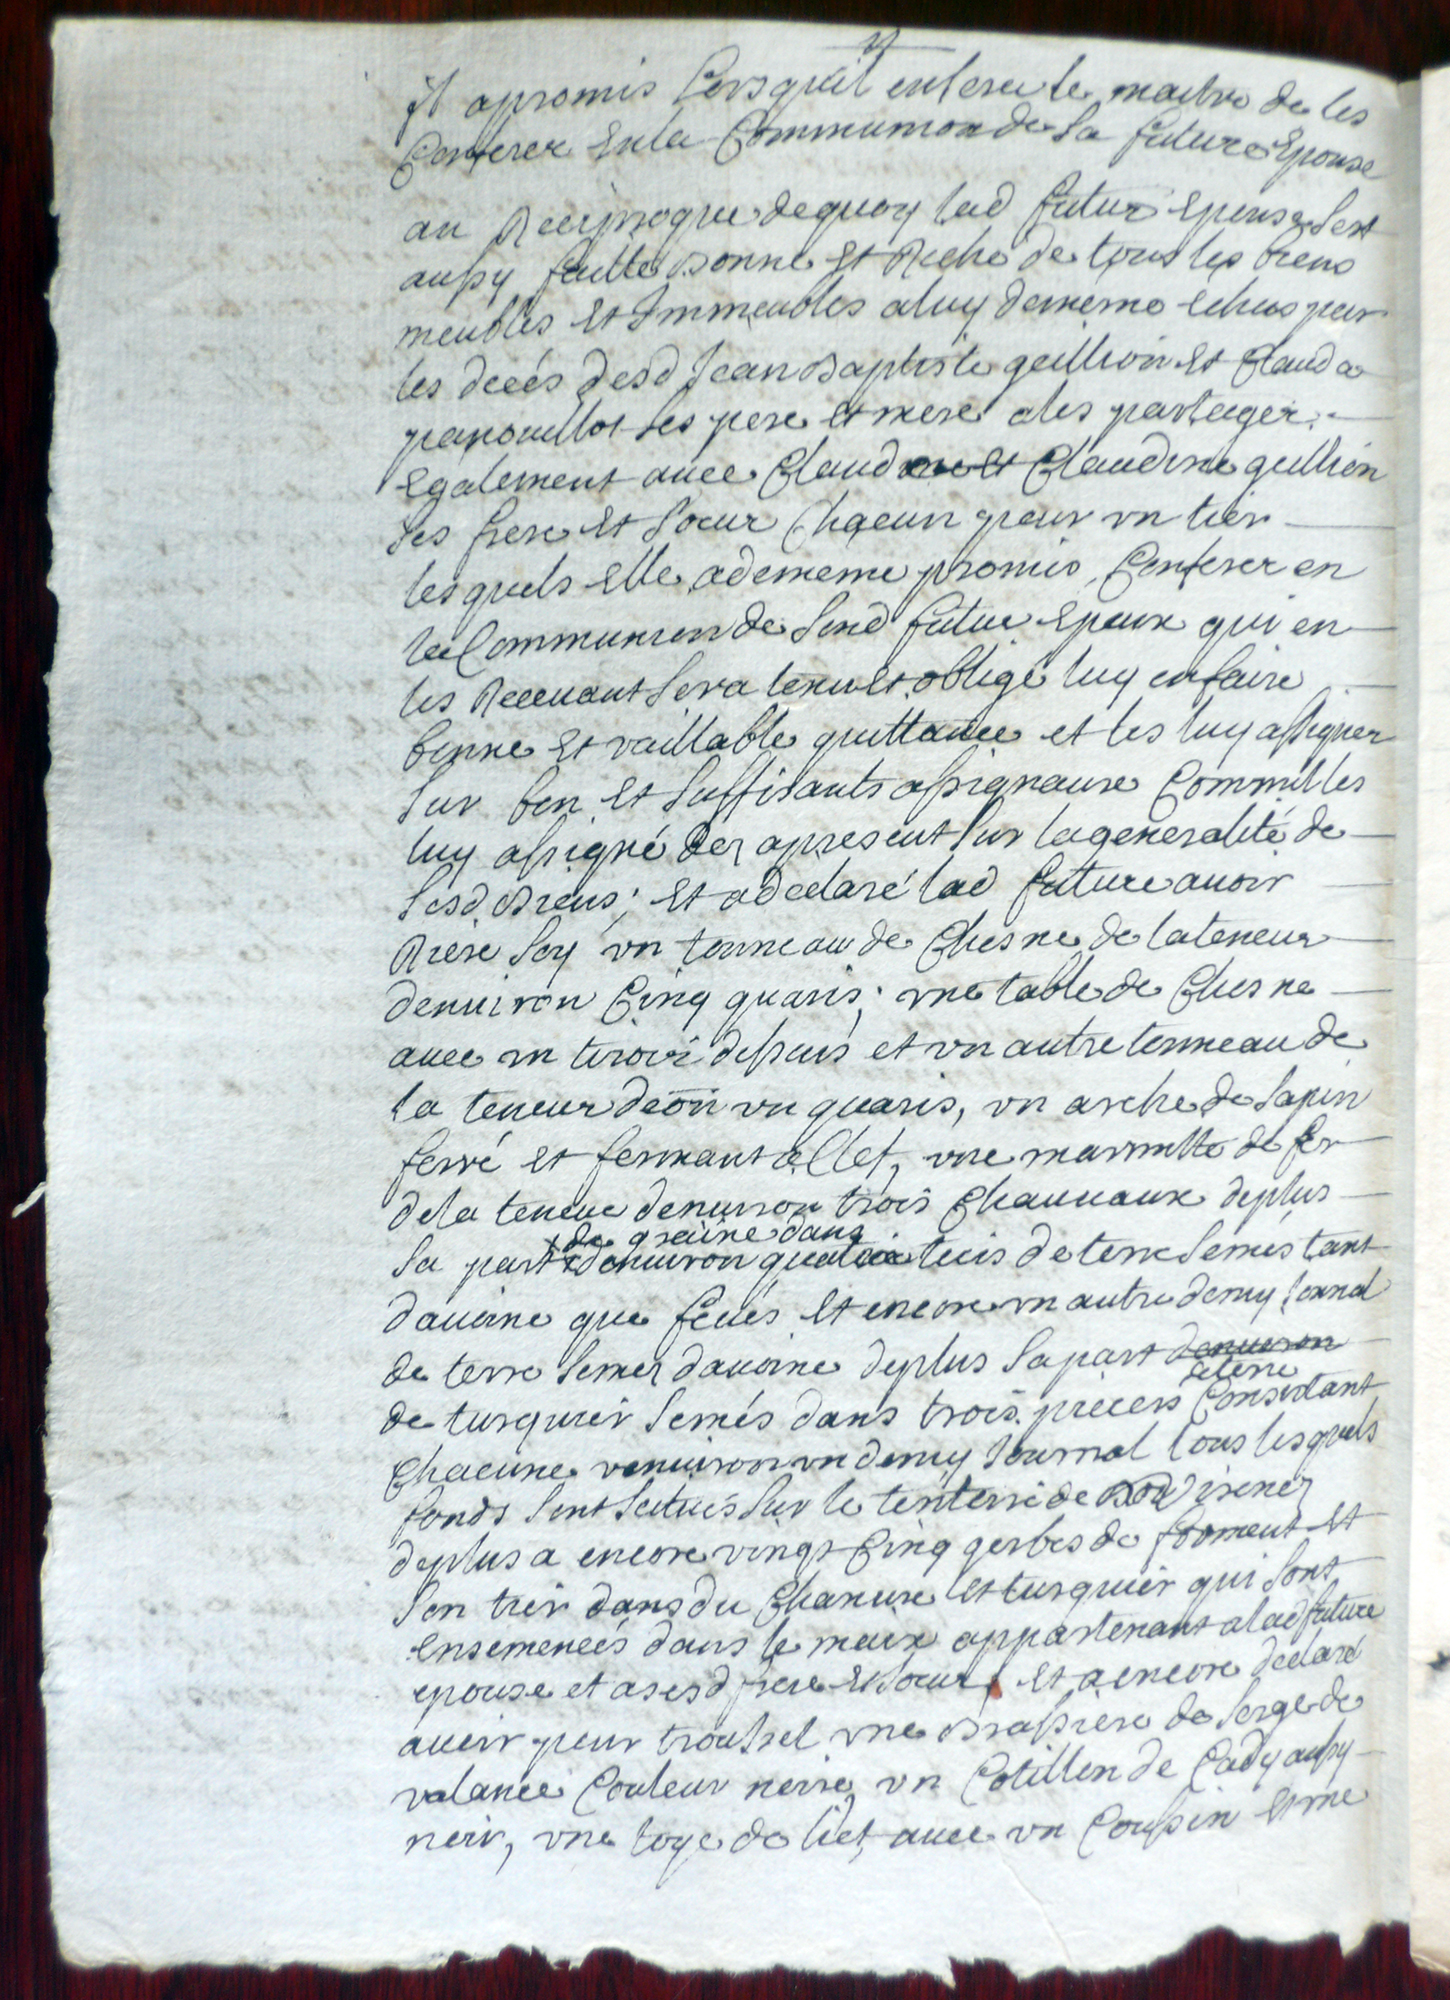 il apromis Lorsquil ensera le maitre de les
Conferer Enla Communion de Sa future Epouse
au Reciproque dequoy lad future epouse Sest
aussy faitte bonne et Riche de tous les biens
meubles et Immeubles aluy dememe echus par
les decés desd Jean Baptiste guillion et Clauda
panouillot Ses pere et mere ales partager
egalement avec Claud Claudine guillion
Ses frere et Soeur Chacun pour un tier
lesquels elle adememe promis Conferer en
la Communion de Sond futur Epoux qui en
les Recevant Sera tenu et obligé luy enfaire
bonne et vaillable quittance et les luy assigner
Sur bon et Suffisants assignaux Commilles
luy assigné dez apresent Sur lageneralité de
Sesd biens; et adeclaré lad future avoir
Riere Soy un tonneau de Chesne de lateneur
denviron Cinq quaris; une table de Chesne
avec un tiroir dessous et un autre tonneau de
la teneur deon un quaris, un arche de Sapin
ferré et fermant a Clef, une marmitte de fer
dela teneur denviron trois Chauvaux deplus
de graine dans
Sa part denviron deterre Semés tant
davoine que feves et encore un autre demy Jornal
de terre Semez davoine deplus Sapart denviron
deterre
de turquier Semés dans trois pieces Consistant
Chacune venviron un demy Journal tous lesquels
fonds Sont Scitués Sur le de
deplus a encore vingt Cinq gerbes de froment et
Son tier dans du Chanvre et turquier qui Sont
ensemencés dans le meix appartenant alad future
epouse et asesd frere et Soeur, et a encore declaré
avoir pour troussel une brassiere de Serge de
valance Couleur noire, un Cotillon de Cady aussy
noir, une toye de liet, avec un Coussin et une